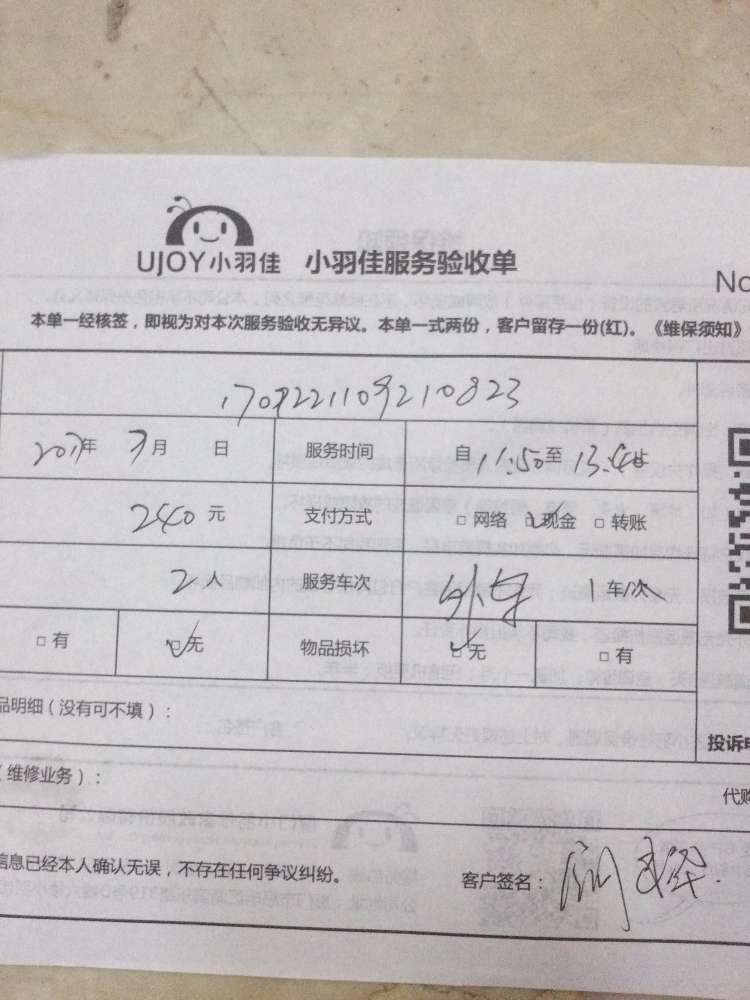 UJOY小羽佳 小羽佳服务验收单
No
本单一经核签，即视为对本次服务验收无异议。本单一式两份，客户留存一份(红)。《维保须知》
1709221109210823
2017年 月 日 服务时间 自 11:50 至 13:
240 元 支付方式 □ 网络 □ 现金 □ 转账
2 人 服务车次 1 车/次
□ 有 □ 无 物品损坏 □ 无 □ 有
品明细（没有可不填）：
投诉电
（维修业务）：
代购
信息已经本人确认无误，不存在任何争议纠纷。 客户签名：